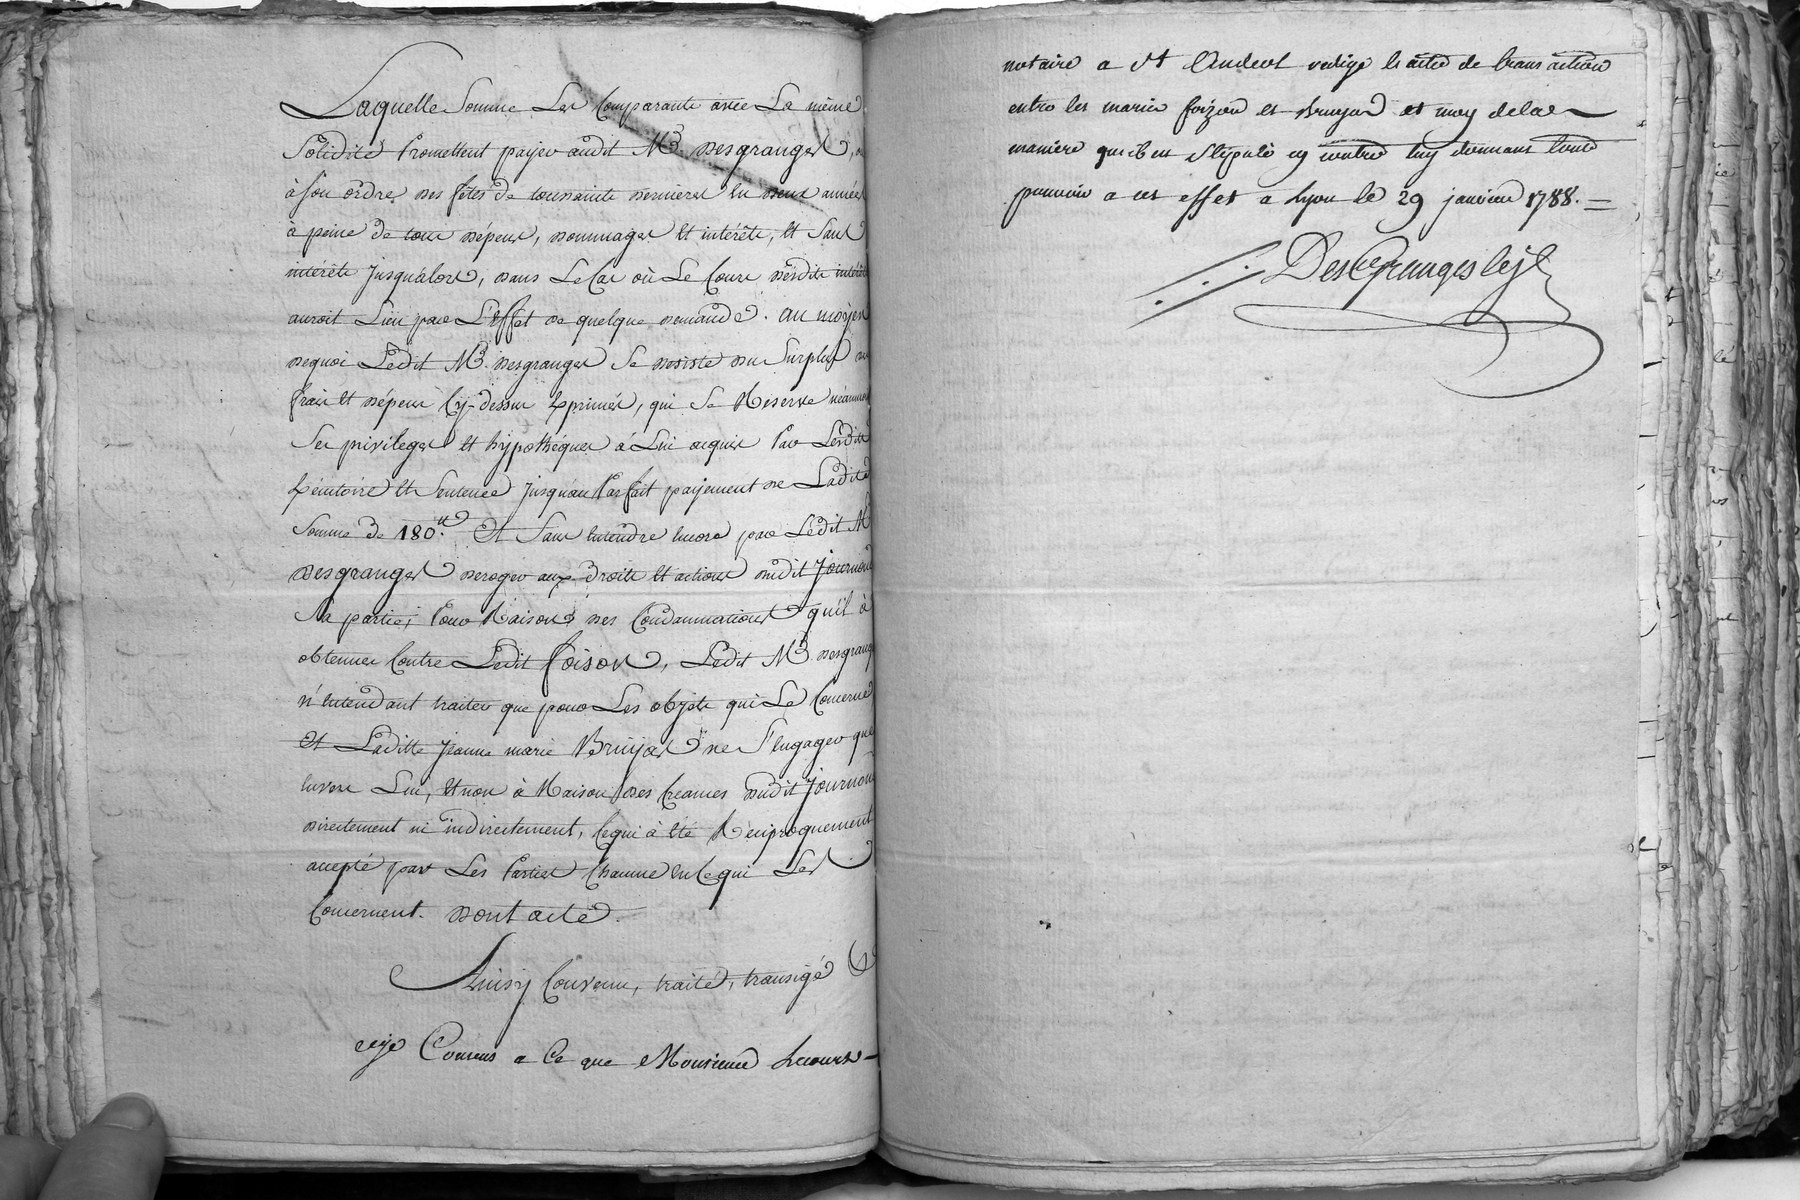 Laquelle Somme Les Comparants avec La même
Solidité Promettent payer audit Mᵉ Desgranges, ou
à son ordre, des fêtes de toussaints dernieres en deux années
à peine de tous dépens, dommages Et intérêts, Et Sans
intérêts jusqualors, dans Le Cas où Le Cours desdits intérêts
auroit Lieu par L'Effet de quelque demande. au moÿen
dequoi Ledit Mᵉ Desgranges Se désiste du Surplus des
frais Et dépens Cy-dessus Exprimés, qui Se Réserve néanmoins
Ses privileges Et hypothéques à Lui acquis Par Lesdits
Exploits Et Sentence jusquau Parfait payement de Ladite
Somme de 180.ᵗᵗ Et Sans Entendre Encore par Ledit Mᵉ
Desgranges deroger aux droits Et actions dudit Journoud
Sa partie, Pour Raison des Condamnations qu'il à
obtenues Contre Ledit Foison, Ledit Mᵉ Desgranges
n'Entendant traiter que pour Les objets qui Le Concerne
Et Laditte Jeanne marie Bruÿas ne S'Engager que
Envers Lui, Et non à Raison des Creances dudit Journoud
directement ni indirectement, Cequi à Eté Réciproquement
accepté par Les Parties Chacune En Cequi Les
Concernent. Dont acte.
Ainsÿ Convenu, traité, transigé &
Consens a Ce que Monsieur
notaire a St Andeol redige lacte de transaction
entre les maries foizon et Bruyas et moy de la
maniere quil en Stipulé en contre luy donnant tout
pouvoir a cet effet a Lyon le 29 janvier 1788.
DesGranges lejᵉ